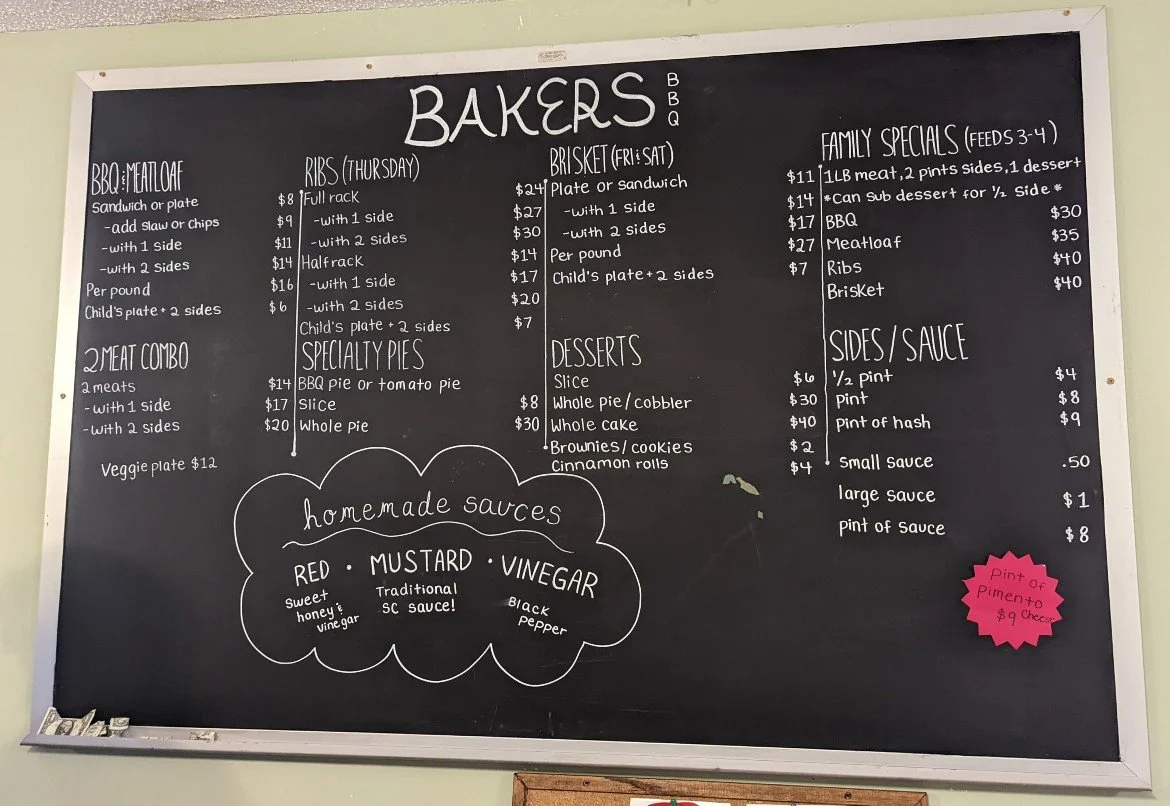 BAKERS BBQ
BBQ & MEATLOAF
Sandwich or plate $8
-add slaw or chips $9
-with 1 side $11
-with 2 sides $14
Per pound $16
Child's plate + 2 sides $6
2 MEAT COMBO
2 meats $14
-with 1 side $17
-with 2 sides $20
Veggie plate $12
RIBS (THURSDAY)
Full rack $24
-with 1 side $27
-with 2 sides $30
Half rack $14
-with 1 side $17
-with 2 sides $20
Child's plate + 2 sides $7
SPECIALTY PIES
BBQ pie or tomato pie
Slice $8
Whole pie $30
BRISKET (FRI & SAT)
Plate or sandwich $11
-with 1 side $14
-with 2 sides $17
Per pound $27
Child's plate + 2 sides $7
DESSERTS
Slice $6
Whole pie/cobbler $30
Whole cake $40
Brownies/cookies $2
Cinnamon rolls $4
FAMILY SPECIALS (FEEDS 3-4)
1LB meat, 2 pints sides, 1 dessert
*Can sub dessert for 1/2 side*
BBQ $30
Meatloaf $35
Ribs $40
Brisket $40
SIDES/SAUCE
1/2 pint $4
pint $8
pint of hash $9
small sauce .50
large sauce $1
pint of sauce $8
homemade sauces
RED · MUSTARD · VINEGAR
Sweet honey & vinegar
Traditional SC sauce!
Black pepper
pint of
pimento
$9 cheese